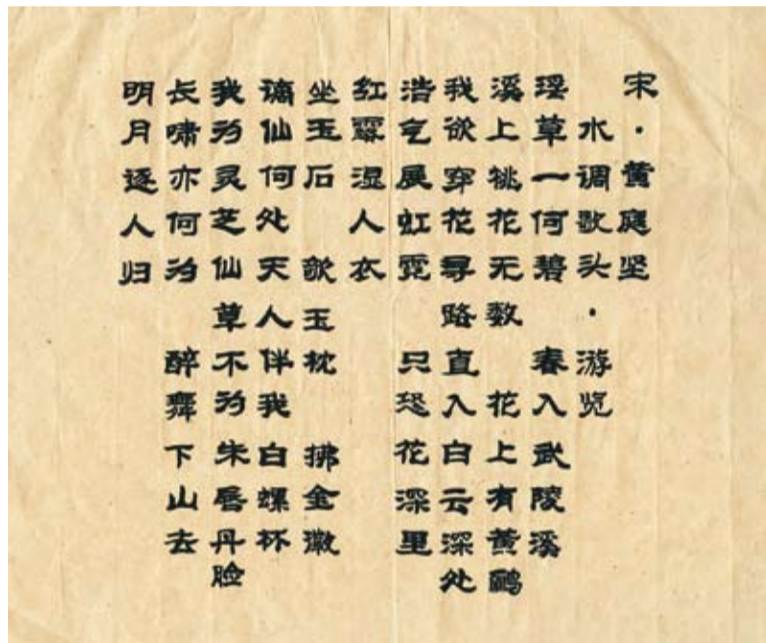 宋·黄庭坚
水调歌头·游览
瑶草一何碧 春入武陵溪
溪上桃花无数 花上有黄鹂
我欲穿花寻路 直入白云深处
浩气展虹霓 只恐花深里
红露湿人衣
坐玉石 欹玉枕 拂金徽
谪仙何处 天人伴我白螺杯
我为灵芝仙草 不为朱唇丹脸
长啸亦何为 醉舞下山去
明月逐人归